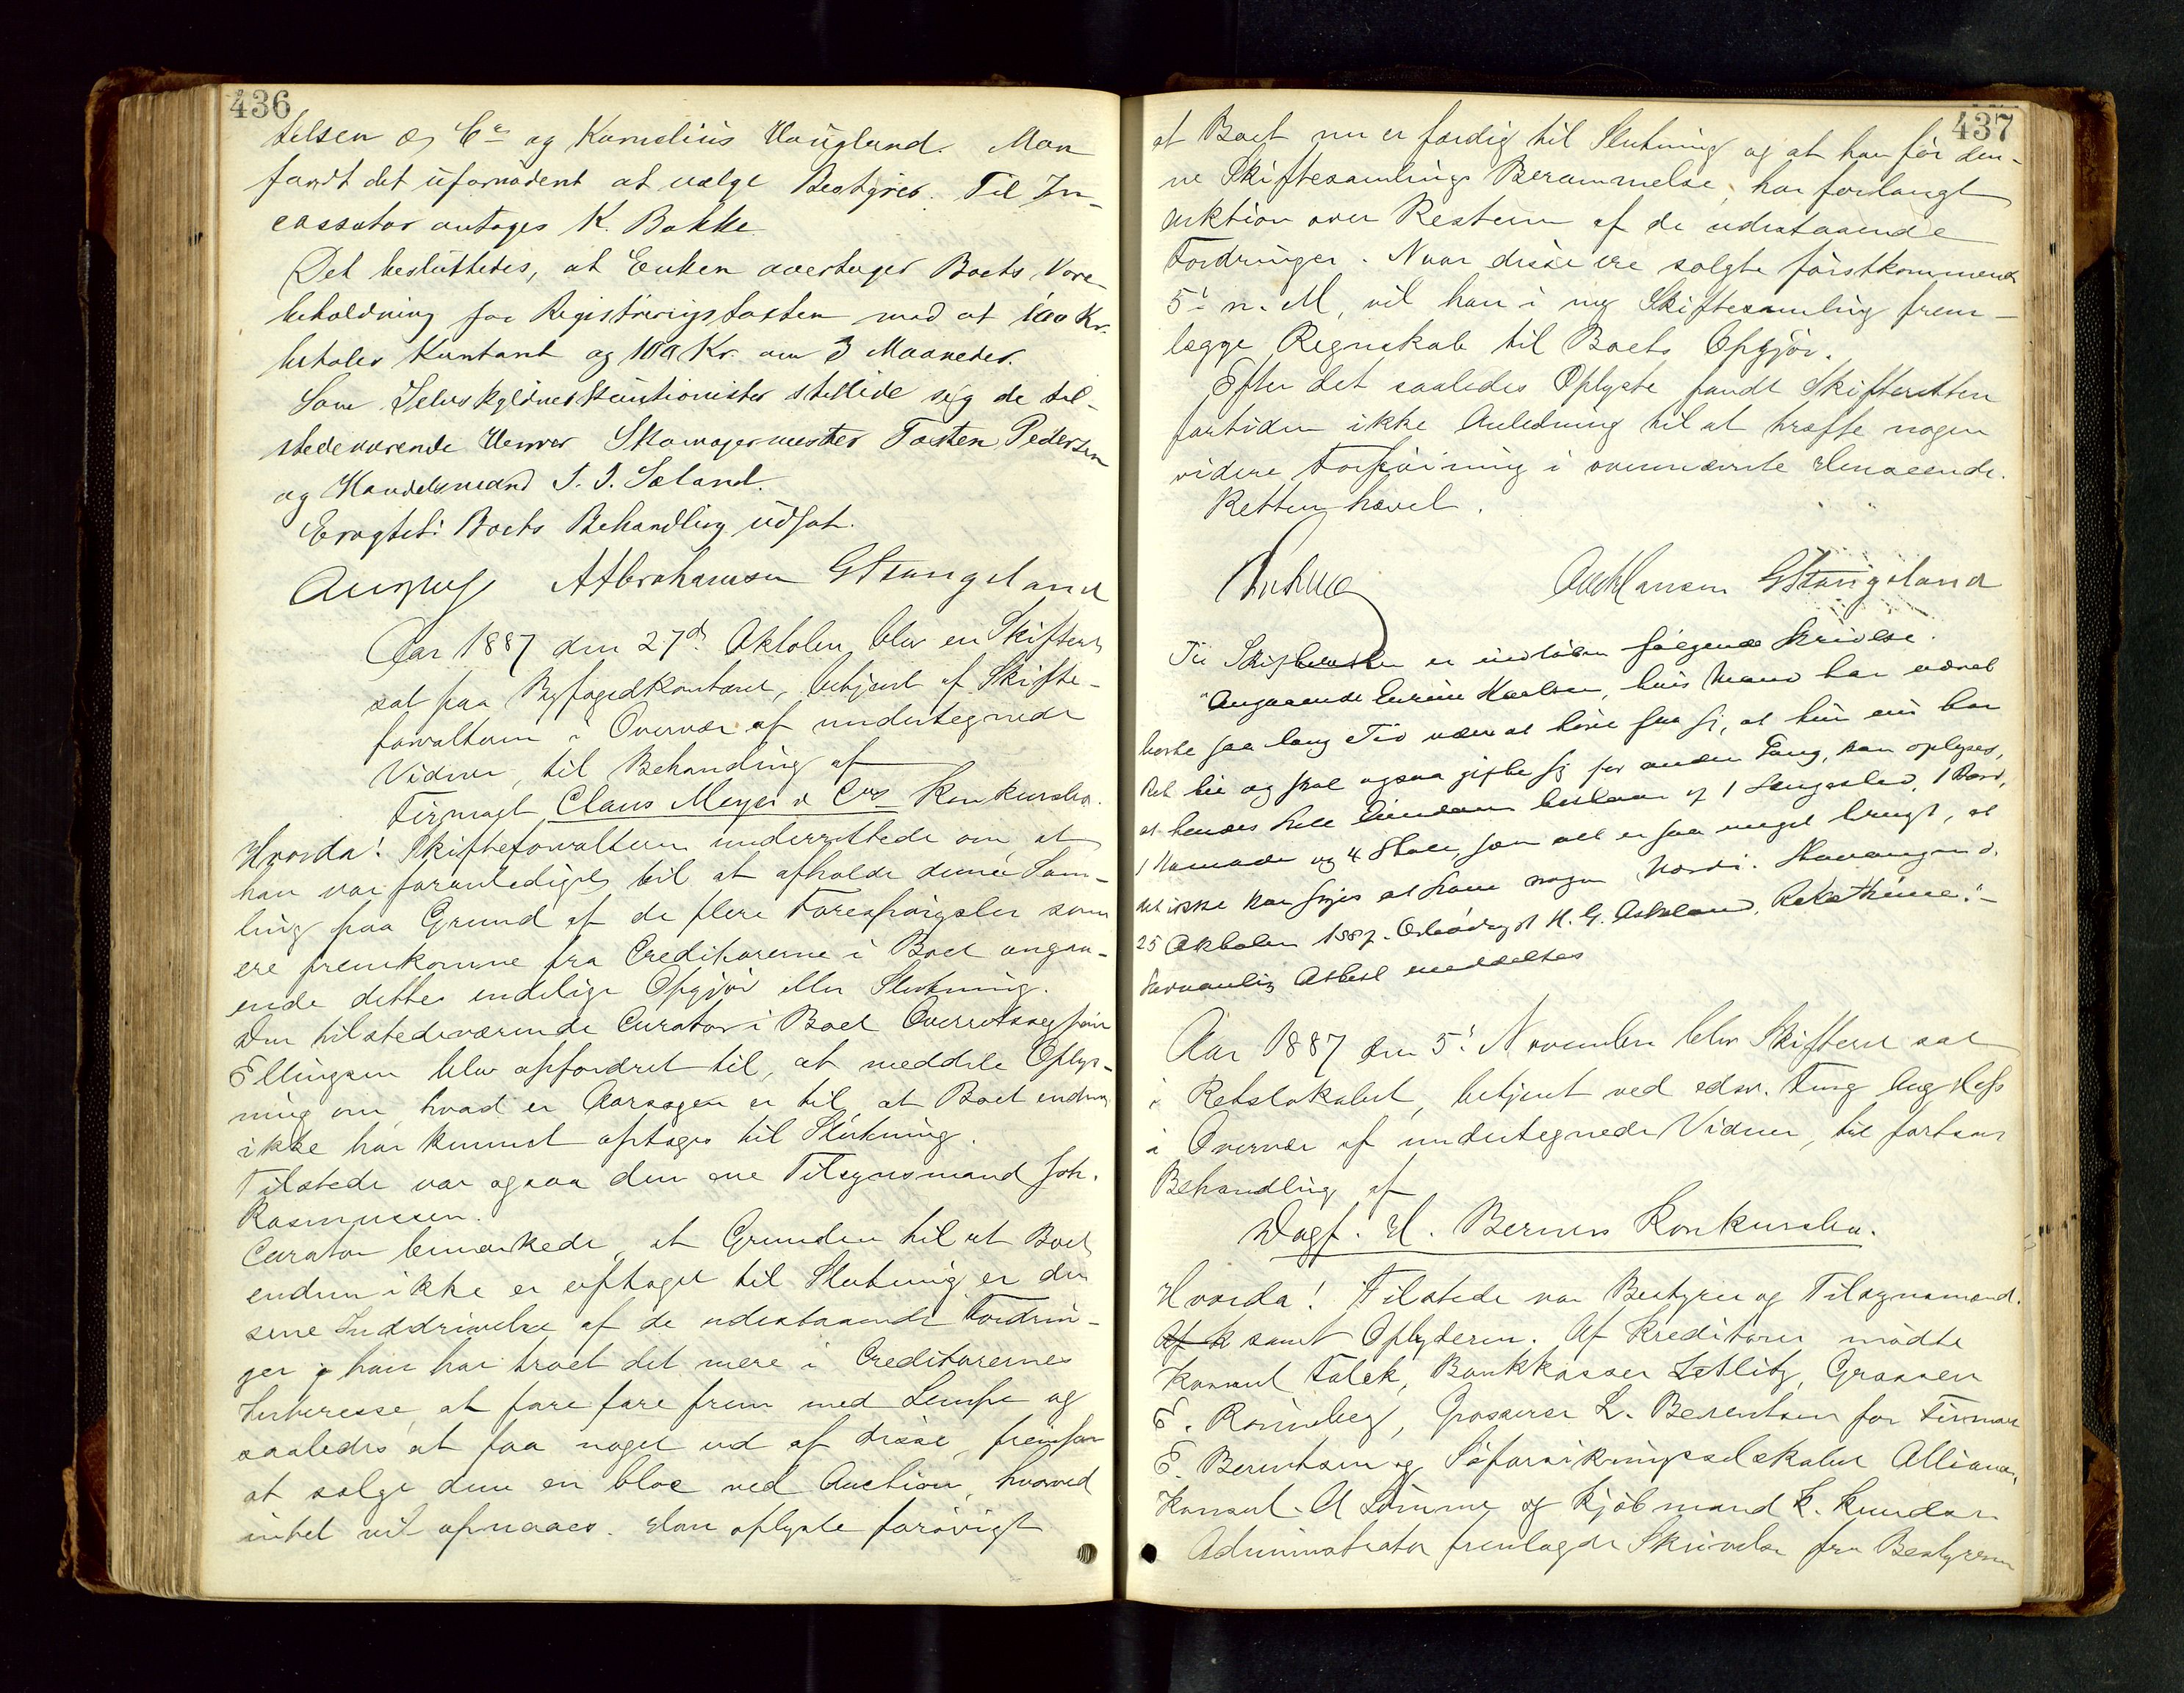 436
telsen og Co og Kornelius Haugland. Man
fandt det ufornødent at vælge Bestyrer. Til In-
cassator antoges K. Bakke
Det besluttedes, at Enken overtager Boets Vare-
beholdning for Registreringstaxten mod at 100 Kr.
betales Kontant og 100 Kr. om 3 Maaneder.
Som Selvskyldnerkautionister stillede sig de til-
stedeværende Herrer Skomagermester Tosten Pedersen
og Handelsmand T. T. Sæland.
Eragtet: Boets Behandling udsat.
A Abrahamsen GStangeland
Aar 1887 den 27de Oktober blev en Skifteret
sat paa Byfogedkontoret, betjent af Skifte-
forvalteren i Overvær af undertegnede
Vidner, til Behandling af
Firmaet Claus Meyer & Cos Konkursbo.
Hvorda! Skifteforvalteren underrettede om, at
han var foranlediget til at afholde denne Sam-
ling paa Grund af de flere Forespørgsler som
ere fremkomne fra Creditorerne i Boet angaa-
ende dettes endelige Opgjør eller Slutning.
Den tilstedeværende Curator i Boet Overretssagfører
Ellingsen blev opfordret til, at meddele Oplys-
ning om, hvad er Aarsagen er til, at Boet endnu
ikke har kunnet optages til Slutning.
Tilstede var ogsaa den ene Tilsynsmand Joh.
Rasmussen.
Curator bemærkede, at Grunden til at Boet
endnu ikke er optaget til Slutning er den
sene Inddrivelse af de udestaaende Fordrin-
ger, han har troet det mere i Creditorernes
Interesse, at fare fare frem med Lempe og
saaledes at faa noget ud af disse, fremfor
at sælge dem en bloc ved Auction, hvorved
intet vil opnaaes. Han oplyste forøvrigt
437
at Boet nu er færdig til Slutning og at han før den-
ne Skiftesamlings Berammelse, har forlangt
Auktion over Resten af de udestaaende
Fordringer. Naar disse ere solgte førstkommende
5te n. M, vil han i ny Skiftesamling frem-
lægge Regnskab til Boets Opgjør.
Efter det saaledes Oplyste fandt Skifteretten
fortiden ikke Anledning til at træffe nogen
videre Forføining i ovennævnte Henseende.
Retten hævet.
Hansen GStangeland
Til Skifteretten er indløben følgende Skrivelse.
"Angaaende Karlsen, hvis Mand har været
borte saa lang Tid uden at høre fra sig, at hun ei har
Ret til og skal ogsaa gifte sig for anden Gang, kan oplyses,
at hendes hele Eiendom bestaar af 1 Sengested, 1 Bord,
1 Komode og 4 Stole, som alt er saa meget brugt, at
det ikke kan siges at have nogen Værdi. Stavanger d.
25 Oktober 1887. Ærbødigst H. G. Askeland,
Sædvanlig Attest meddeltes
Aar 1887 den 5te November blev Skifteret sat
i Retslokalet, betjent ved edsv. Fuldm. Aug Hess
i Overvær af undertegnede Vidner, til fortsat
Behandling af
Dagf. H. Berners Konkursbo.
Hvorda! Tilstede var Bestyrer og Tilsynsmænd.
Af K samt Opbyderen. Af Kreditorer mødte
Konsul Falck, Bankkasser Zetlitz, Grosserer
E. Rosenberg, Grosserer L. Berentsen for Firmaet
E. Berentsen og Søforsikringsselskabet Alliance,
Konsul A Sømme og Kjøbmand K. Knudsen
Administrator fremlagde Skrivelse fra Bestyreren